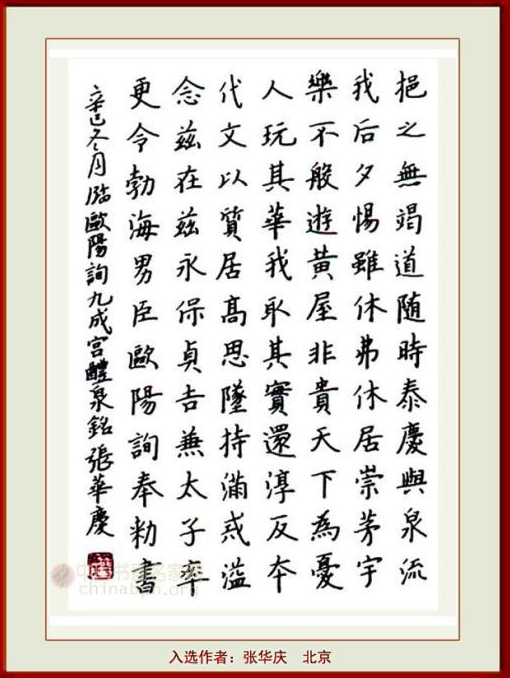 挹之無竭道随時泰慶與泉流
我后夕惕雖休弗休居崇茅宇
樂不般遊黄屋非貴天下為憂
人玩其華我取其實還淳反夲
代文以質居髙思墜持滿戒溢
念兹在兹永保貞吉兼太子率
更令勃海男臣歐陽詢奉勑書
辛巳冬月臨歐陽詢九成宫醴泉銘張華慶
入选作者：张华庆 北京